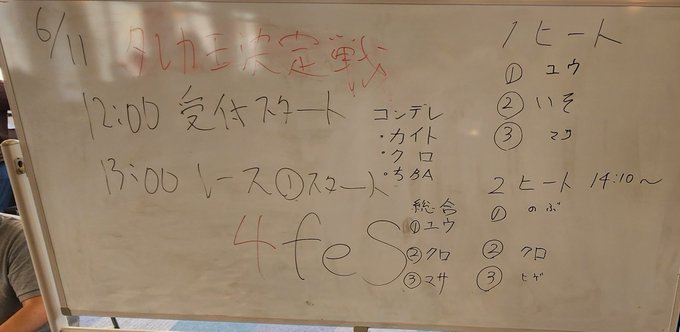 6/11
タレカ王決定戦!!
12:00 受付スタート
13:00 レース①スタート
4feS
コンデレ
・カイト
・クロ
・ちBA
総合
①ユウ
②クロ
③マサ
1ヒート
① ユウ
② いそ
③ マク
2ヒート 14:10〜
① のぶ
② クロ
③ ヒゲ